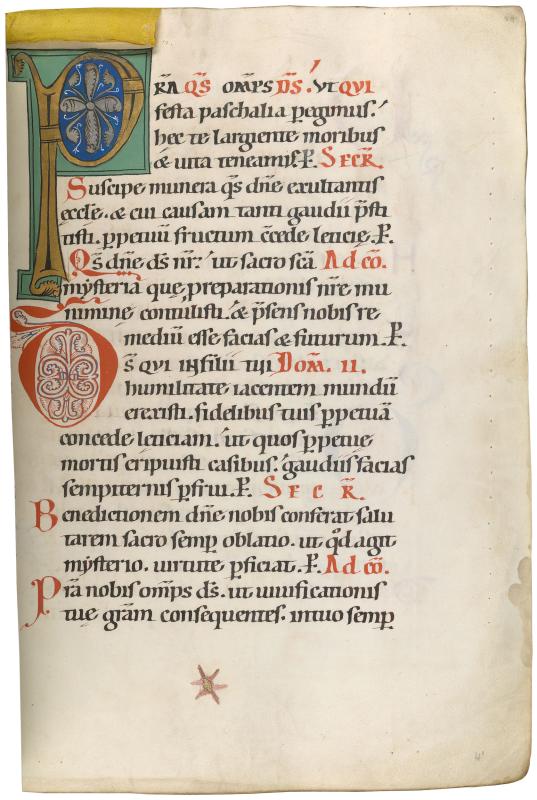 PRÆ QS OMPS DS. UT QUI
festa paschalia pegimus.
hec te largiente moribus
& uita teneamus. P. SECR.
Suscipe munera qs dne exultantis
eccle. & cui causam tanti gaudii psti
tisti. ppetuu fructum ccede leticie. P.
Qs dne ds nr. ut sacrosca Ad co.
mysteria que, preparationis nre mu
nimine contulisti. & psens nobis re
medium esse facias & futurum. P.
DS QUI IN filii tui Dom. II.
humilitate iacentem mundu
erexisti. fidelibus tuis ppetua
concede leticiam. ut quos ppetue
mortis eripuisti casibus. gaudiis facias
sempiternis pfrui. P. SECR.
Benedictionem dne nobis conferat salu
tarem sacra semp oblatio. ut qd agit
mysterio. uirtute pficiat. P. Ad co.
Pra nobis omps ds. ut uiuificationis
tue gram consequentes. in tuo semp